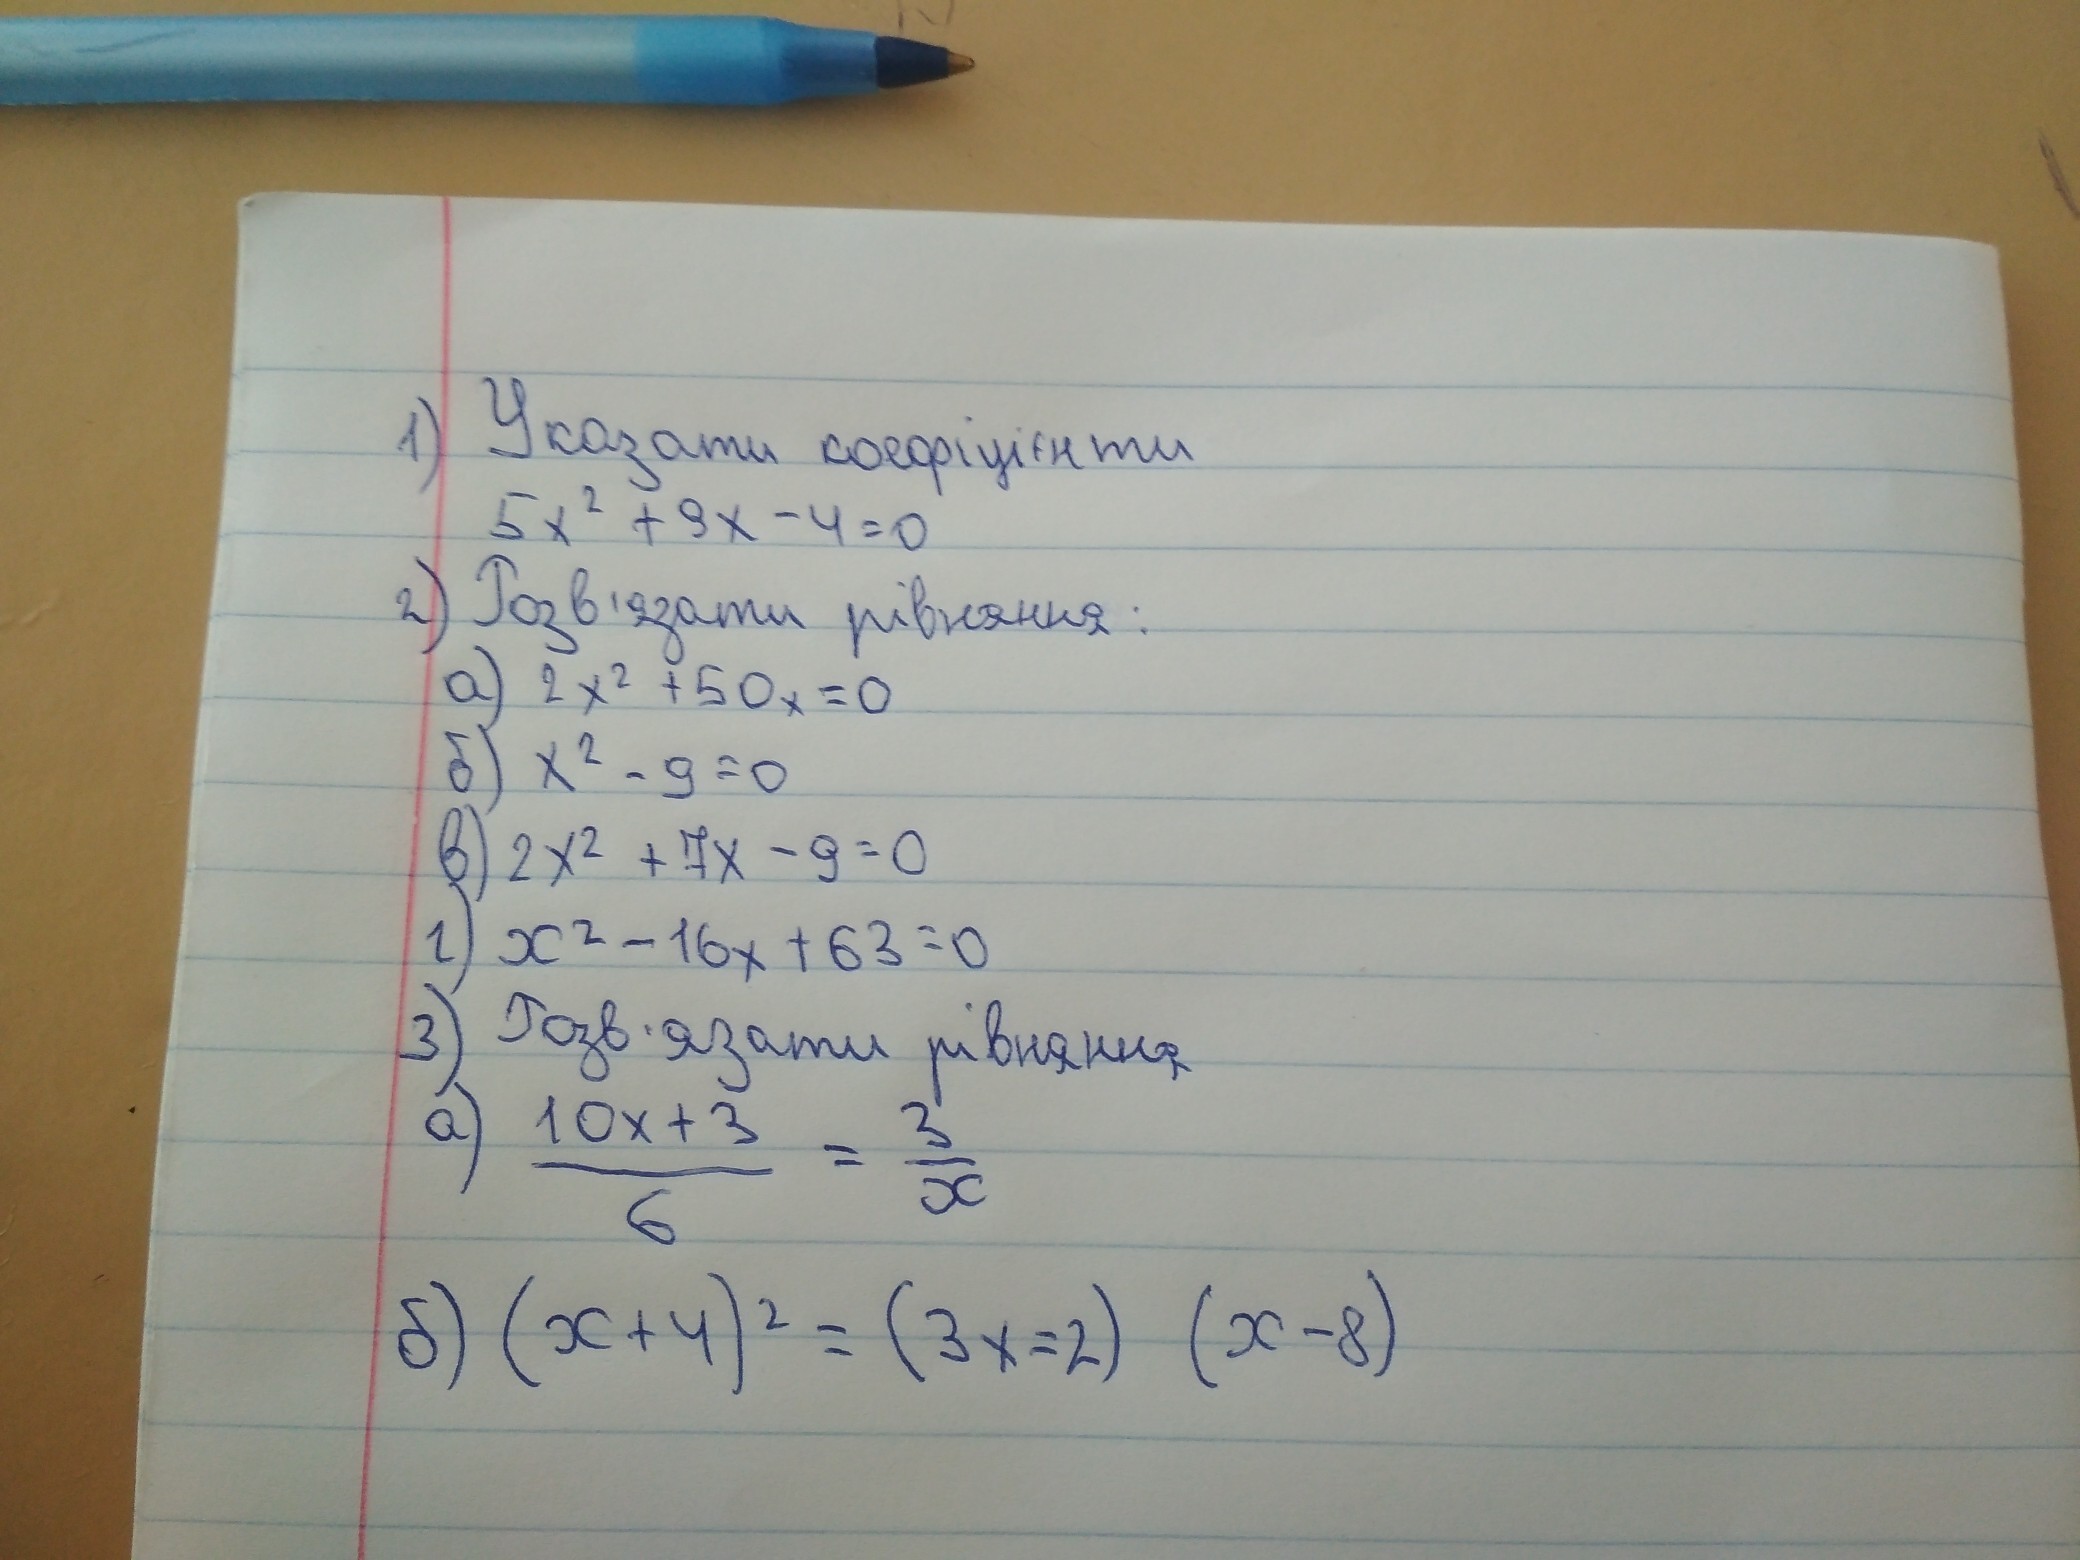 1) Указати коефіцієнти
5x² + 9x - 4 = 0
2) Розв'язати рівняння:
а) 2x² + 50x = 0
б) x² - 9 = 0
в) 2x² + 7x - 9 = 0
г) x² - 16x + 63 = 0
3) Розв'язати рівняння
а) 10x + 3 / 6 = 3 / x
б) (x + 4)² = (3x = 2) (x - 8)